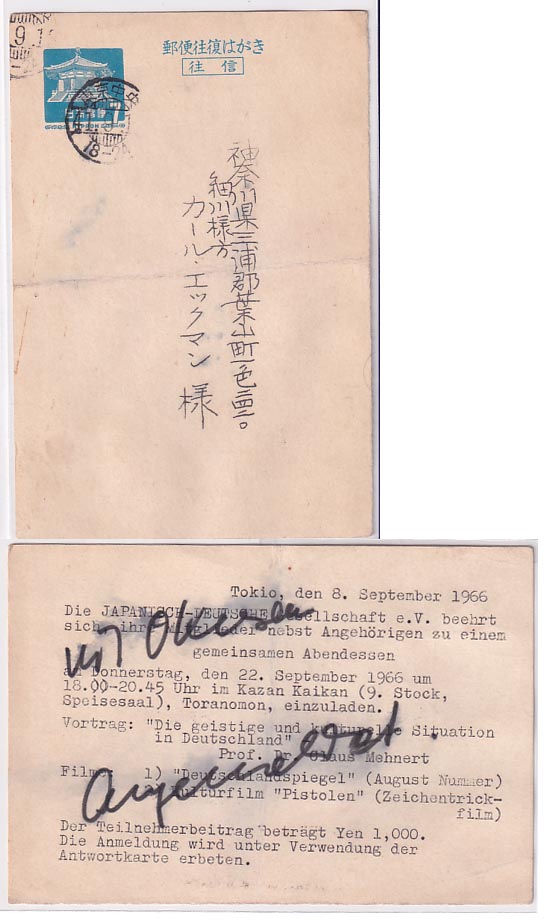 郵便往復はがき
往信
神奈川県三浦郡葉山町一色
細川様方
カール・エックマン 様
Tokio, den 8. September 1966
Die JAPANISCH-DEUTSCHE Gesellschaft e.V. beehrt
sich, ihre Mitglieder nebst Angehörigen zu einem
gemeinsamen Abendessen
am Donnerstag, den 22. September 1966 um
18.00-20.45 Uhr im Kazan Kaikan (9. Stock,
Speisesaal), Toranomon, einzuladen.
Vortrag: "Die geistige und kulturelle Situation
in Deutschland"
Prof. Dr. Claus Mehnert
Filme: 1) "Deutschlandspiegel" (August Nummer)
Kulturfilm "Pistolen" (Zeichentrick-
film)
Der Teilnehmerbeitrag beträgt Yen 1,000.
Die Anmeldung wird unter Verwendung der
Antwortkarte erbeten.
angemeldet.